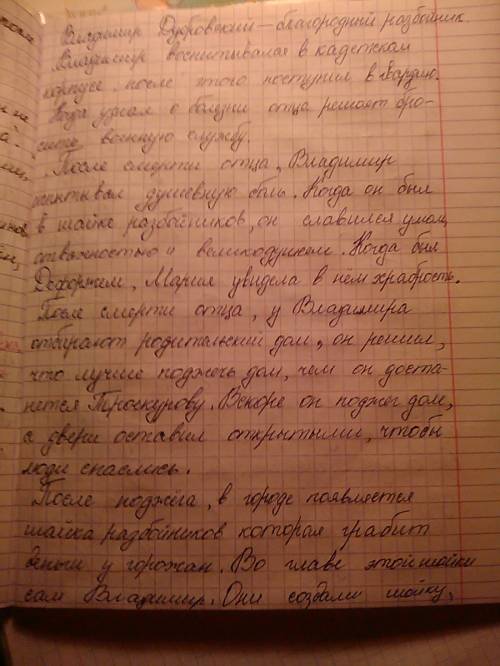 Владимир Дубровский – благородный разбойник.
Владимир воспитывался в кадетском
корпусе, после этого поступил в гвардию.
Когда узнал о болезни отца решает бро-
сить военную службу.
После смерти отца, Владимир
испытывал душевную боль. Когда он был
в шайке разбойников, он славился умом,
отважностью и великодушием. Когда был
Дефоржем, Мария увидела в нем храбрость.
После смерти отца, у Владимира
отбирают родительский дом, он решил,
что лучше поджечь дом, чем он доста-
нется Троекурову. Вскоре он поджег дом,
а двери оставил открытыми, чтобы
люди спаслись.
После поджега, в городе появляется
шайка разбойников которая грабит
деньги у горожан. Во главе этой шайки
сам Владимир. Они создали шайку,